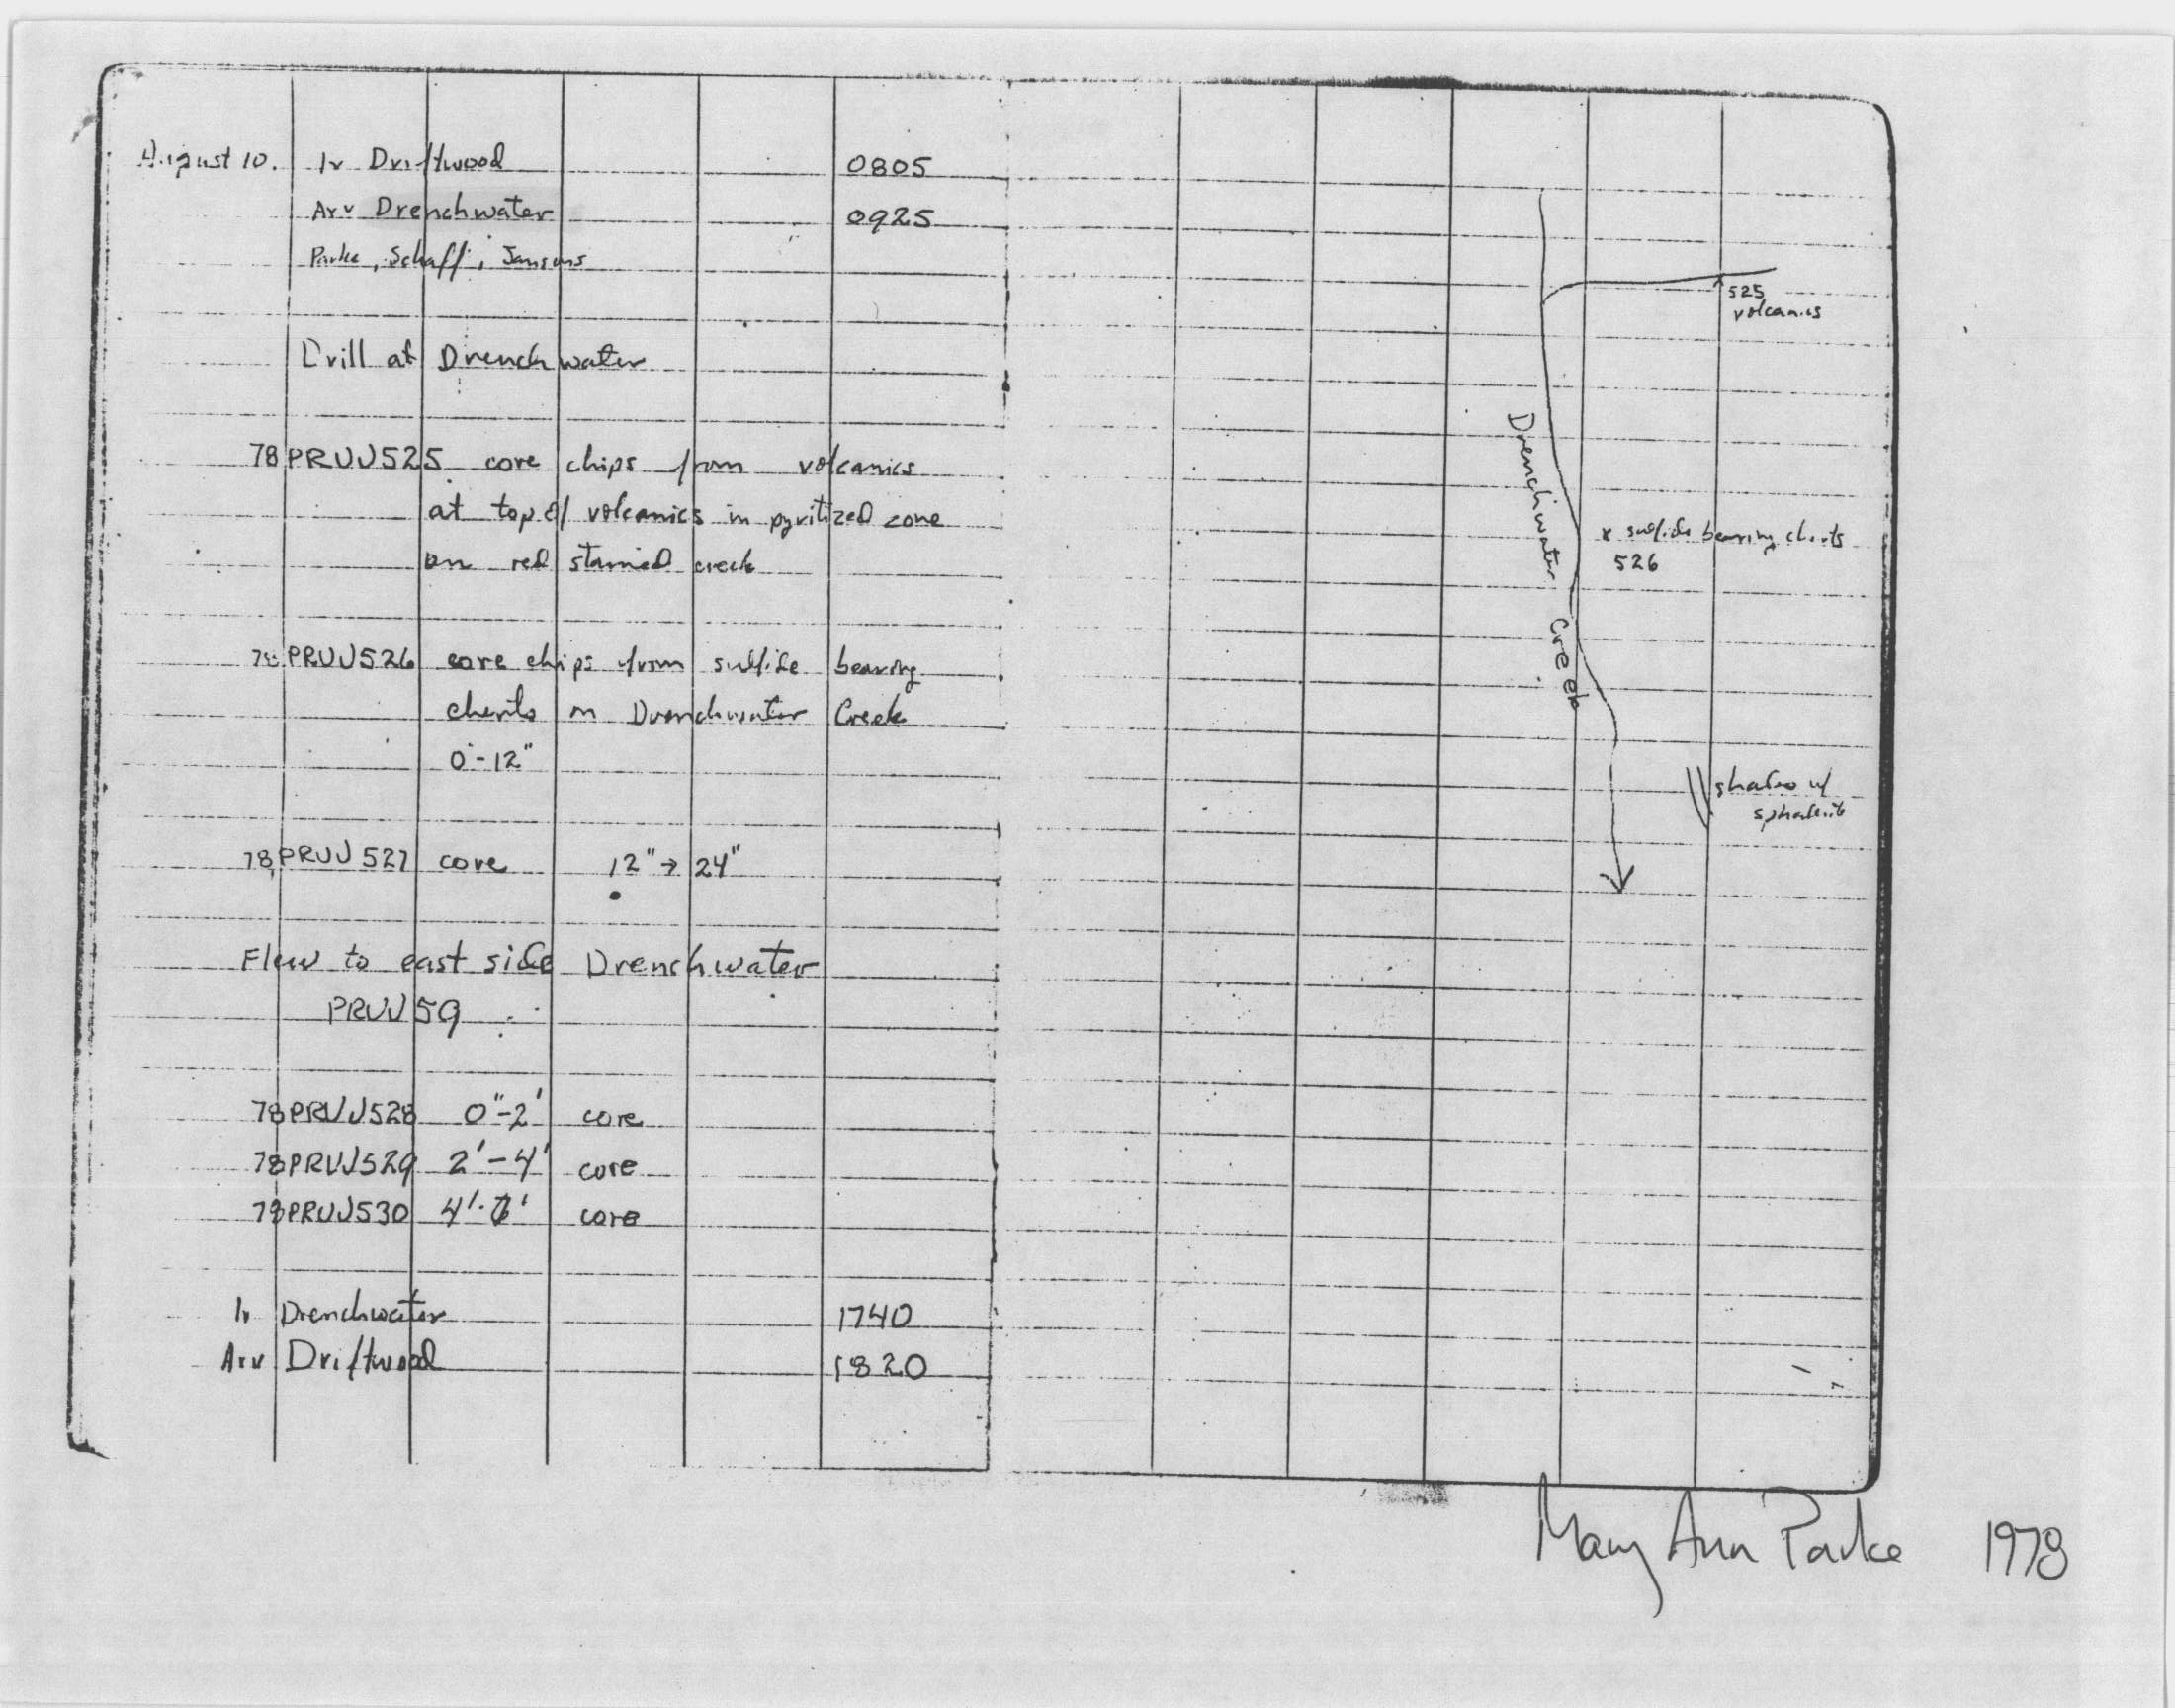 August 10. lv Driftwood 0805
Arv Drenchwater 0925
Parke, Schaff, Jansons
Drill at Drenchwater
78PRUJ525 core chips from volcanics
at top of volcanics in pyritized zone
on red stained creek
78PRUJ526 core chips from sulfide bearing
cherts on Drenchwater Creek
0"-12"
78PRUJ527 core 12"→24"
Flew to east side Drenchwater
PRUJ59
78PRUJ528 0"-2' core
78PRUJ529 2'-4' core
78PRUJ530 4'- core
lv Drenchwater 1740
Arv Driftwood 1820
525
volcanics
Drenchwater Creek
x sulfide bearing cherts
526
shales w/
sphalerite
Mary Ann Parke 1978